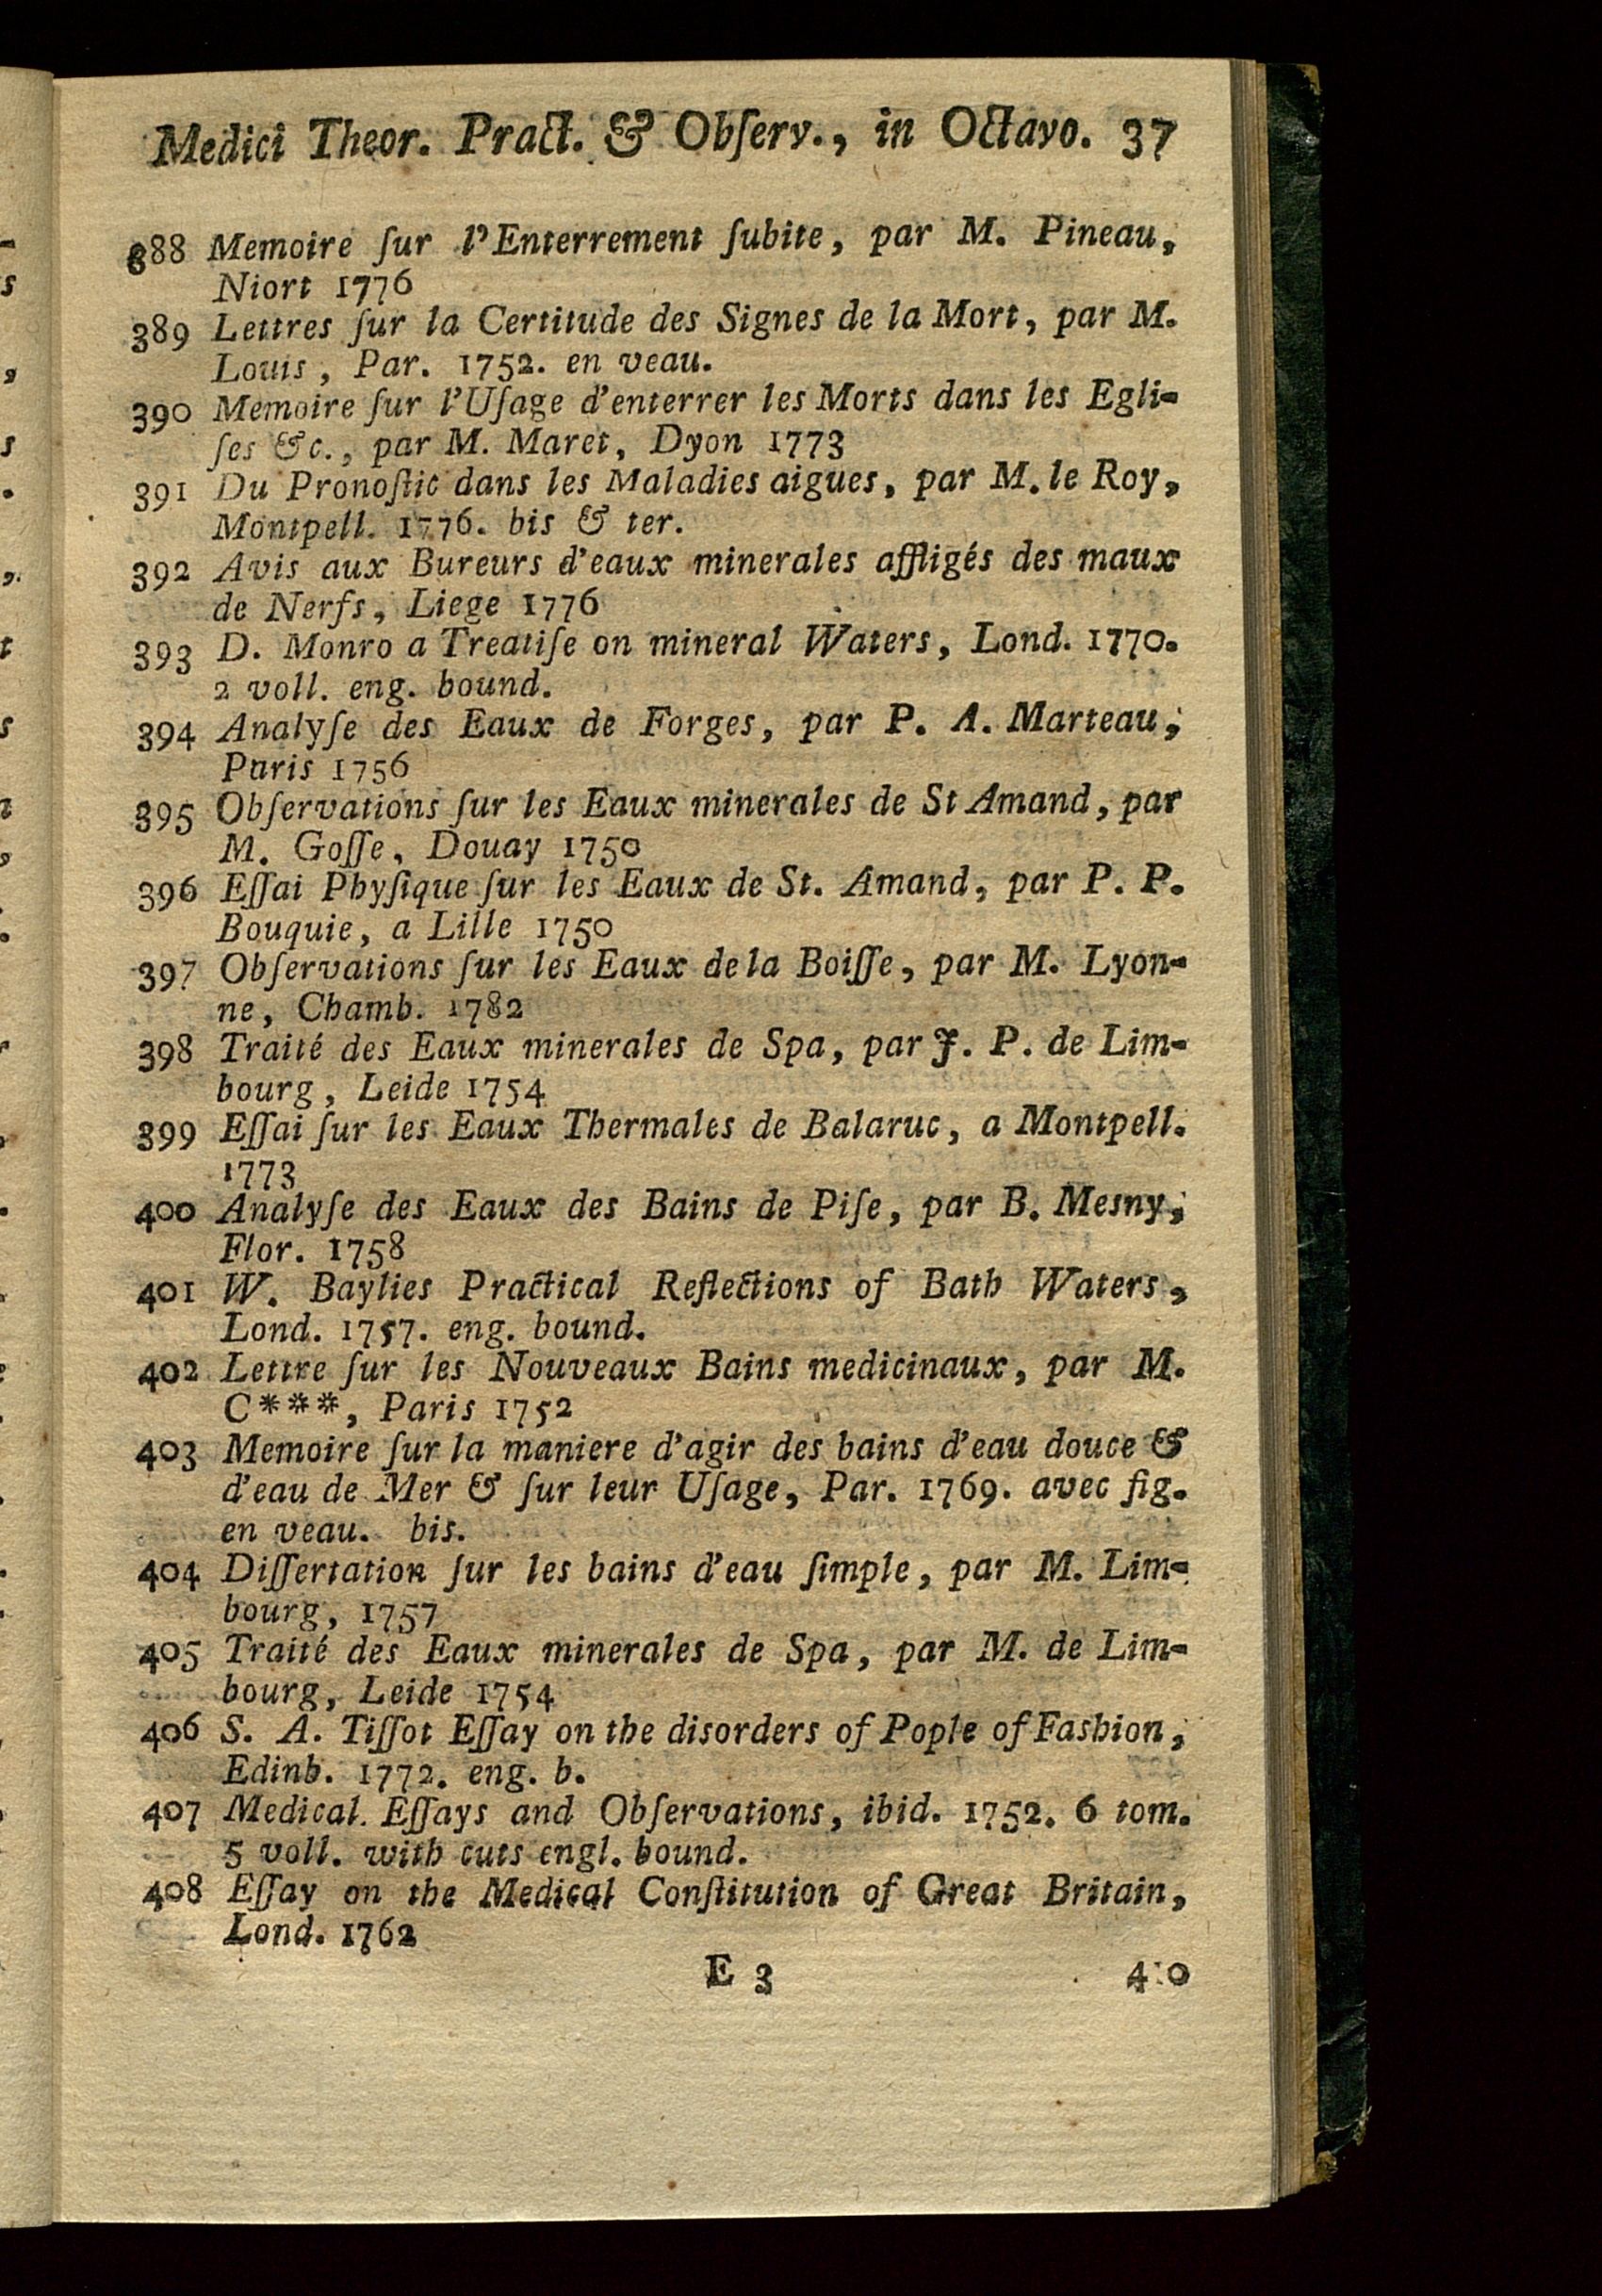 Medici Theor. Pract. & Obſerv., in Octavo. 37
388 Memoire ſur l'Enterrement ſubite, par M. Pineau,
Niort 1776
389 Lettres ſur la Certitude des Signes de la Mort, par M.
Louis, Par. 1752. en veau.
390 Memoire ſur l'Uſage d'enterrer les Morts dans les Egli-
ſes &c., par M. Maret, Dyon 1773
391 Du Pronoſtic dans les Maladies aigues, par M. le Roy,
Montpell. 1776. bis & ter.
392 Avis aux Bureurs d'eaux minerales affligés des maux
de Nerfs, Liege 1776
393 D. Monro a Treatiſe on mineral Waters, Lond. 1770.
2 voll. eng. bound.
394 Analyſe des Eaux de Forges, par P. A. Marteau,
Paris 1756
395 Obſervations ſur les Eaux minerales de St Amand, par
M. Goſſe, Douay 1750
396 Eſſai Phyſique ſur les Eaux de St. Amand, par P. P.
Bouquie, a Lille 1750
397 Obſervations ſur les Eaux de la Boiſſe, par M. Lyon-
ne, Chamb. 1782
398 Traité des Eaux minerales de Spa, par J. P. de Lim-
bourg, Leide 1754
399 Eſſai ſur les Eaux Thermales de Balaruc, a Montpell.
1773
400 Analyſe des Eaux des Bains de Piſe, par B. Mesny,
Flor. 1758
401 W. Baylies Practical Reflections of Bath Waters,
Lond. 1757. eng. bound.
402 Lettre ſur les Nouveaux Bains medicinaux, par M.
C***, Paris 1752
403 Memoire ſur la maniere d'agir des bains d'eau douce &
d'eau de Mer & ſur leur Uſage, Par. 1769. avec fig.
en veau. bis.
404 Diſſertation ſur les bains d'eau ſimple, par M. Lim-
bourg, 1757
405 Traité des Eaux minerales de Spa, par M. de Lim-
bourg, Leide 1754
406 S. A. Tiſſot Eſſay on the disorders of Pople of Fashion,
Edinb. 1772. eng. b.
407 Medical Eſſays and Obſervations, ibid. 1752. 6 tom.
5 voll. with cuts engl. bound.
408 Eſſay on the Medical Conſtitution of Great Britain,
Lond. 1762
E 3 4 0